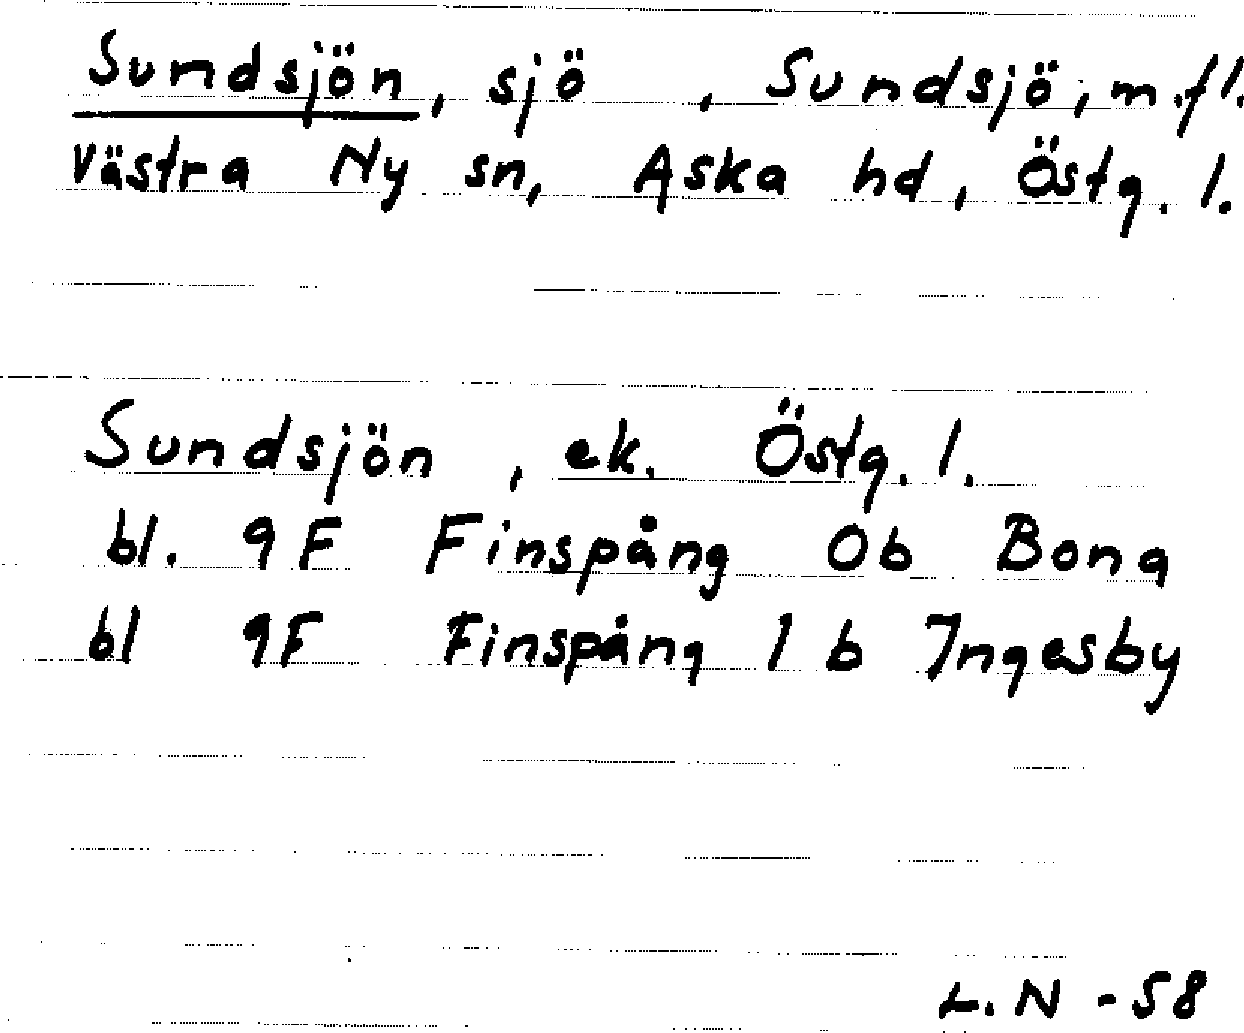 Sundsjön, sjö , Sundsjö, m.fl.
Västra Ny sn, Aska hd, Östg. l.
Sundsjön , ek. Östg. l.
bl. 9F Finspång 0b Bona
bl 9F Finspång 1b Ingesby
L.N -58